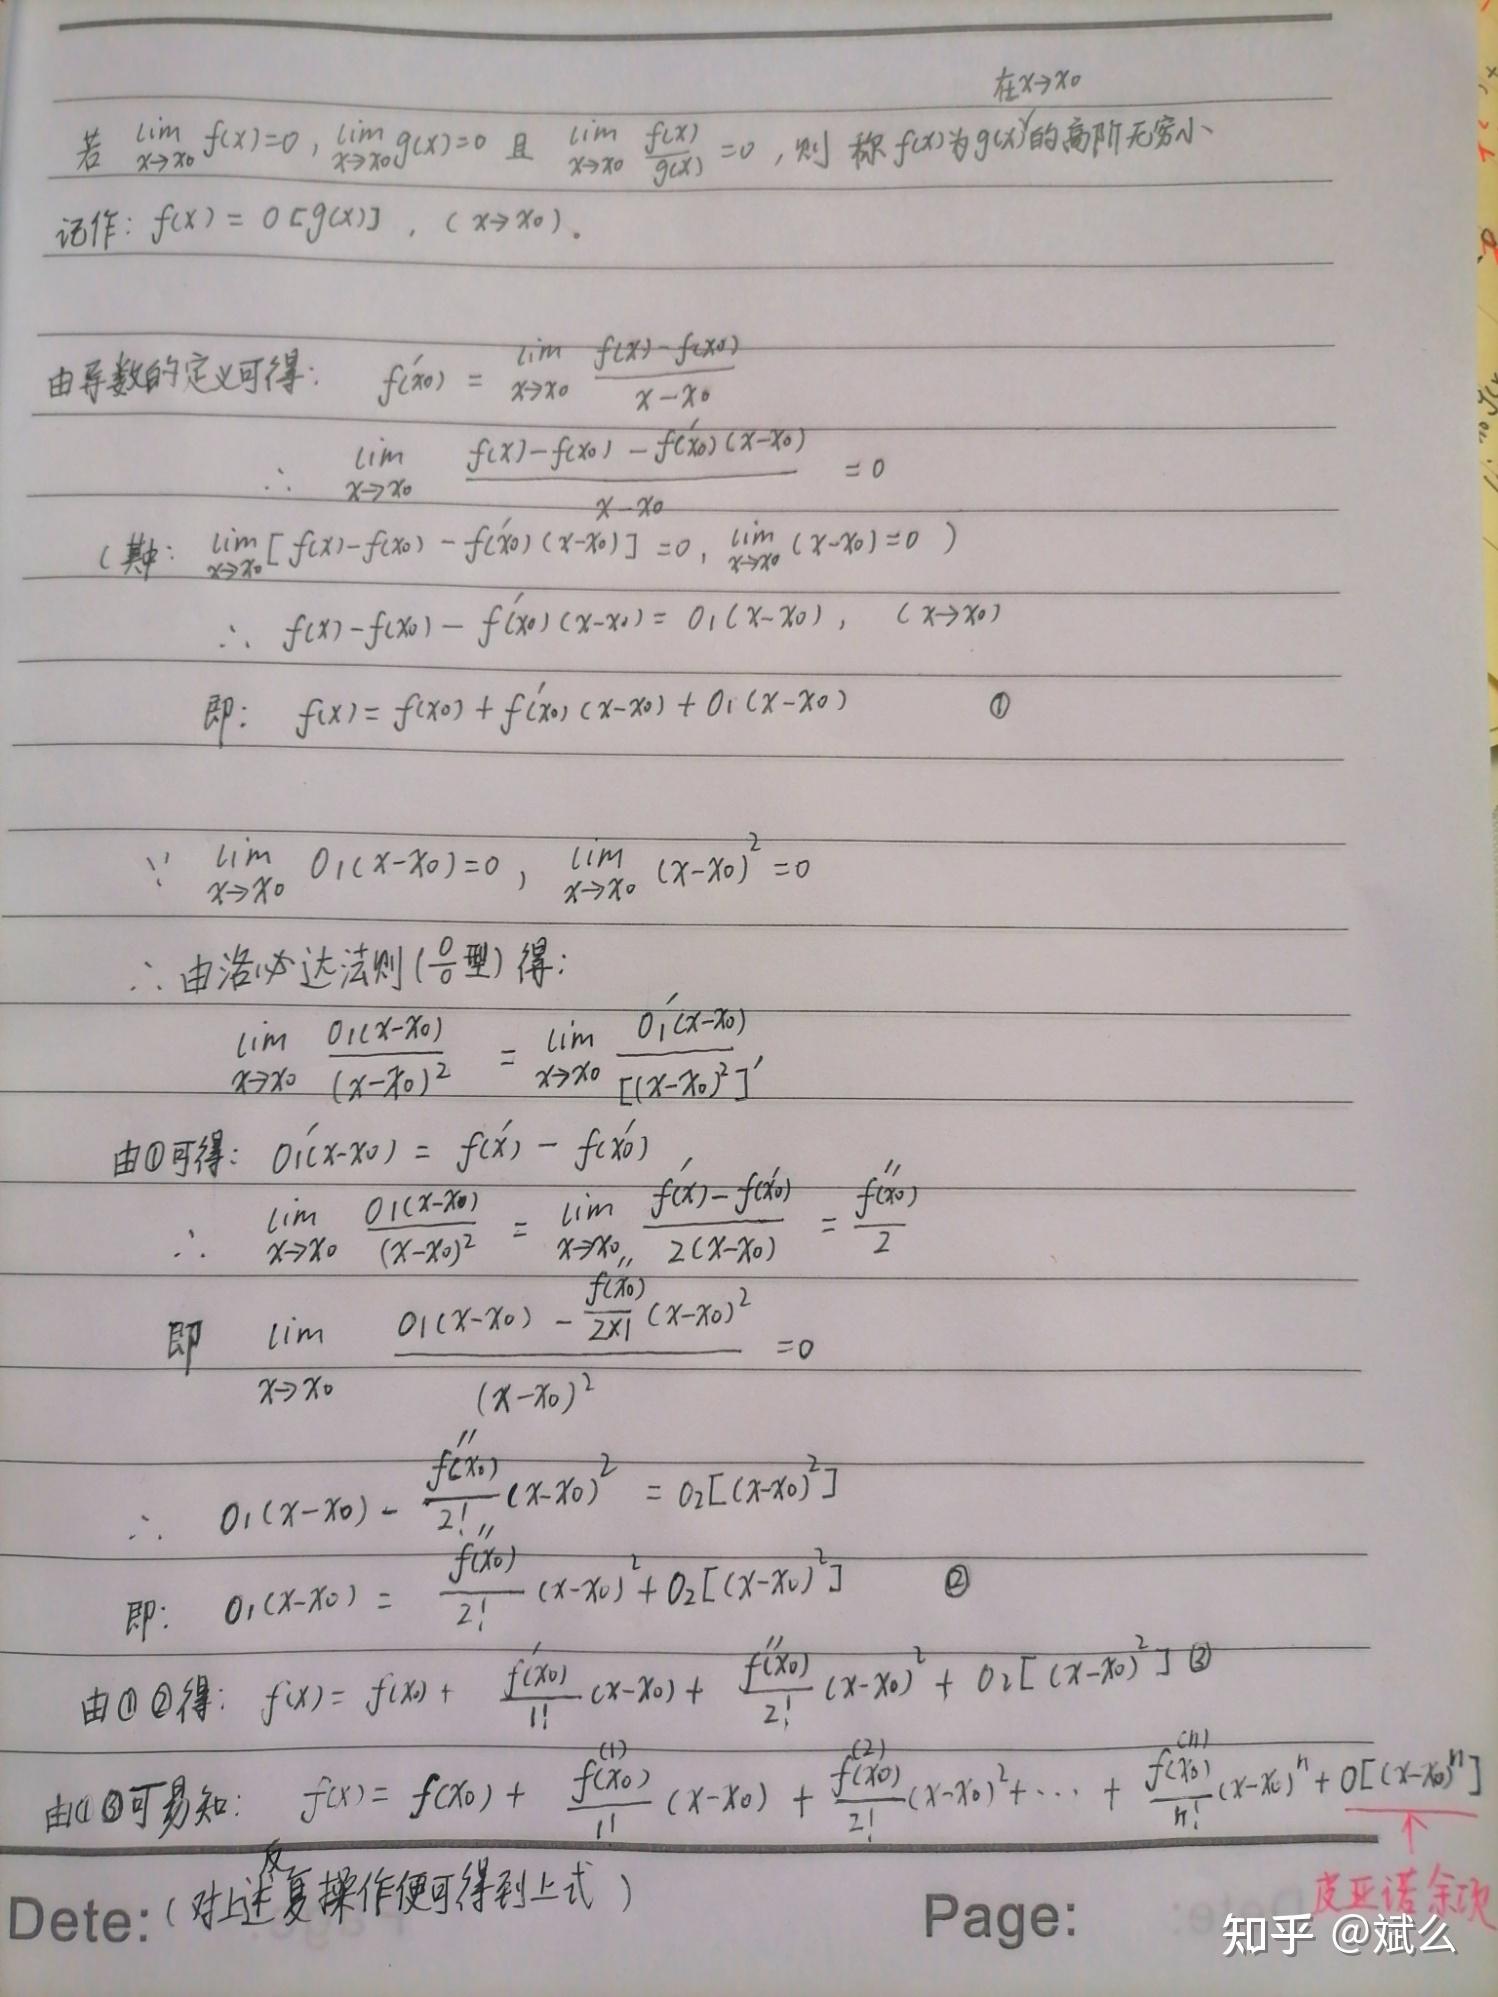 在x→x₀
若 lim_{x→x₀} f(x)=0, lim_{x→x₀} g(x)=0 且 lim_{x→x₀} f(x)/g(x) =0, 则 称 f(x)为g(x)的高阶无穷小
记作: f(x) = o[g(x)], (x→x₀)。
由导数的定义可得: f′(x₀) = lim_{x→x₀} (f(x)-f(x₀))/(x-x₀)
∴ lim_{x→x₀} (f(x)-f(x₀)-f′(x₀)(x-x₀))/(x-x₀) =0
(其中: lim_{x→x₀}[f(x)-f(x₀)-f′(x₀)(x-x₀)] =0, lim_{x→x₀}(x-x₀)=0)
∴ f(x)-f(x₀)-f′(x₀)(x-x₀)= o₁(x-x₀), (x→x₀)
即: f(x)= f(x₀)+f′(x₀)(x-x₀)+o₁(x-x₀) ①
∵ lim_{x→x₀} o₁(x-x₀)=0, lim_{x→x₀} (x-x₀)²=0
∴由洛必达法则(0/0型)得:
lim_{x→x₀} o₁(x-x₀)/(x-x₀)² = lim_{x→x₀} o₁′(x-x₀)/[(x-x₀)²]′
由①可得: o₁′(x-x₀) = f′(x) - f′(x₀)
∴ lim_{x→x₀} o₁(x-x₀)/(x-x₀)² = lim_{x→x₀} (f′(x)-f′(x₀))/(2(x-x₀)) = f″(x₀)/2
即 lim_{x→x₀} (o₁(x-x₀) - f″(x₀)/(2×1) (x-x₀)²)/(x-x₀)² =0
∴ o₁(x-x₀) - f″(x₀)/2! (x-x₀)² = o₂[(x-x₀)²]
即: o₁(x-x₀) = f″(x₀)/2! (x-x₀)²+o₂[(x-x₀)²] ②
由①②得: f(x)= f(x₀)+ f′(x₀)/1! (x-x₀)+ f″(x₀)/2! (x-x₀)²+o₂[(x-x₀)²] ③
由①③可易知: f(x)= f(x₀)+ f⁽¹⁾(x₀)/1! (x-x₀) + f⁽²⁾(x₀)/2! (x-x₀)²+···+ f⁽ⁿ⁾(x₀)/n! (x-x₀)ⁿ+o[(x-x₀)ⁿ]
皮亚诺余项
Dete: (对上述反复操作便可得到上式)
Page:
知乎 @斌么